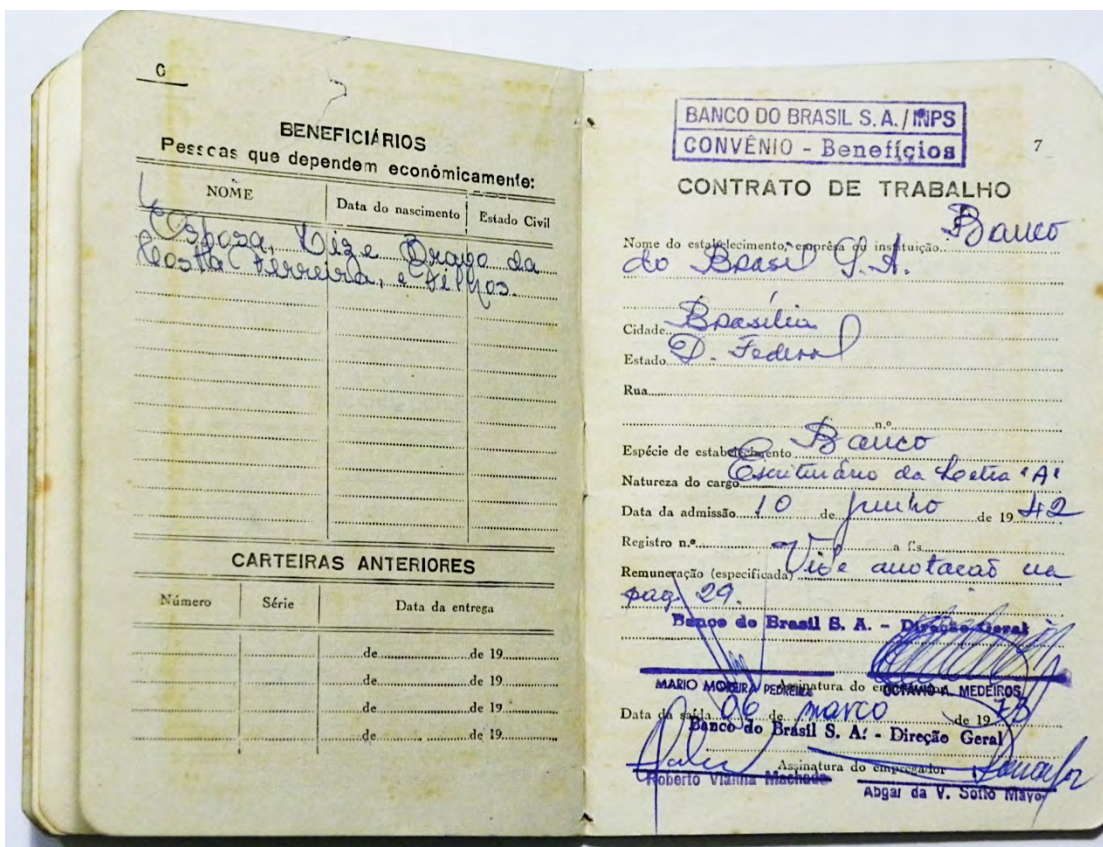 6
BENEFICIÁRIOS
Pessoas que dependem econômicamente:
NOME Data do nascimento Estado Civil
Esposa, Dize Braga da
Costa Ferreira, e filhos.
CARTEIRAS ANTERIORES
Número Série Data da entrega
de de 19
de de 19
de de 19
de de 19
BANCO DO BRASIL S.A./INPS
CONVÊNIO - Benefícios
7
CONTRATO DE TRABALHO
Nome do estabelecimento, emprêsa ou instituição Banco
do Brasil S.A.
Cidade Brasília
Estado D. Federal
Rua
n.º
Espécie de estabelecimento Banco
Natureza do cargo Escriturário da Letra "A"
Data da admissão 10 de junho de 1942
Registro n.º a fs.
Remuneração (especificada) Vide anotação na
pag. 29.
Banco do Brasil S. A. - Direção Geral
MARIO MOREIRA PEDREIRA Assinatura do empregador OCTÁVIO A. MEDEIROS
Data da saída 06 de março de 1973
Banco do Brasil S. A. - Direção Geral
Assinatura do empregador
Roberto Vianna Machado Abgar da V. Sotto Mayor